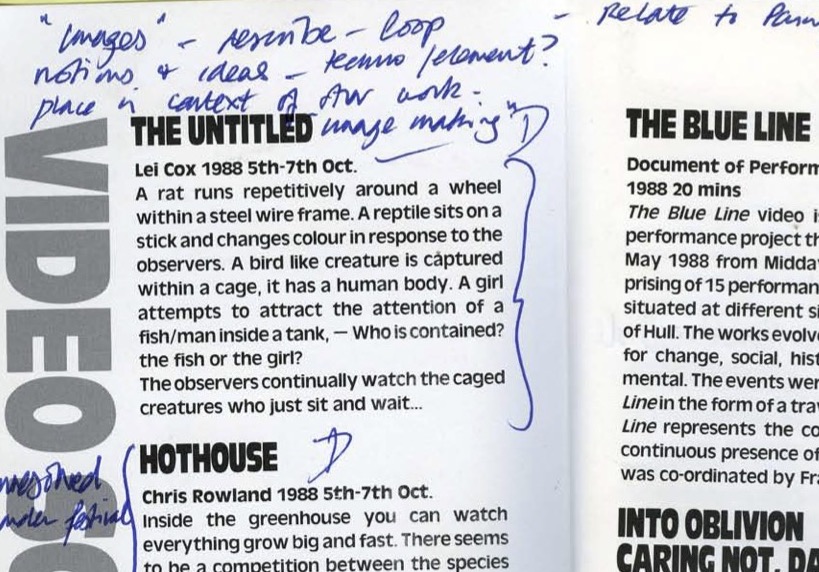 "Images" - describe - loop
notions & ideas - techno/element?
place in context of other work -
image making"
- Relate to
VIDEO
THE UNTITLED
Lei Cox 1988 5th-7th Oct.
A rat runs repetitively around a wheel
within a steel wire frame. A reptile sits on a
stick and changes colour in response to the
observers. A bird like creature is captured
within a cage, it has a human body. A girl
attempts to attract the attention of a
fish/man inside a tank, — Who is contained?
the fish or the girl?
The observers continually watch the caged
creatures who just sit and wait...
HOTHOUSE
under festival
Chris Rowland 1988 5th-7th Oct.
Inside the greenhouse you can watch
everything grow big and fast. There seems
to be a competition between the species
THE BLUE LINE
Document of Perform
1988 20 mins
The Blue Line video i
performance project th
May 1988 from Midda
prising of 15 performan
situated at different si
of Hull. The works evolv
for change, social, hist
mental. The events wer
Line in the form of a tra
Line represents the co
continuous presence of
was co-ordinated by Fra
INTO OBLIVION
CARING NOT, DA